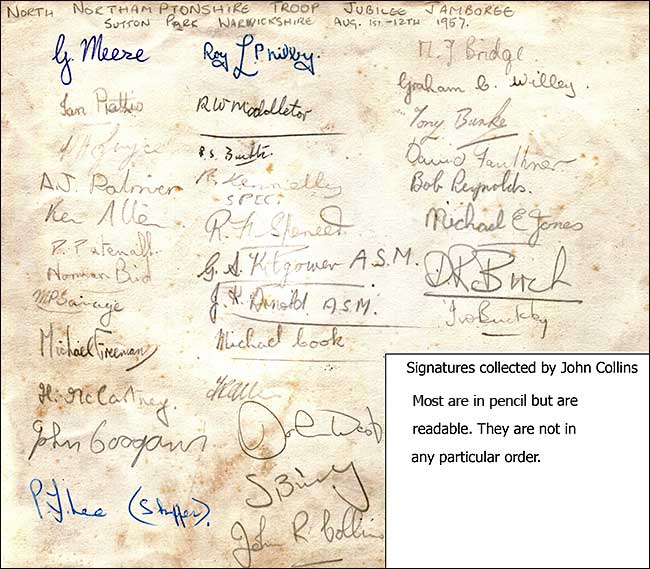 NORTH NORTHAMPTONSHIRE TROOP JUBILEE JAMBOREE
SUTTON PARK WARWICKSHIRE AUG. 1ST.-12TH 1957.
G. Meeze
Roy L.
M. J Bridge
Ian
R W Middleton
Graham C. Willey
Tony Burke
Joyce
David Faulkner
A.J. Palmer
R. Kennelly
SPEC.
Bob Reynolds.
Ken Allen
R. H. Spencer
Michael E Jones
P. Patenall
Norman Bird
G. S. A.S.M.
D.R. Birch
MP Savage
J. K. Arnold A.S.M.
Buckby
Michael Freeman
Michael Cook
H. McCartney.
John West
John Googans
P. J. Lee
S.
John R. Collins
Signatures collected by John Collins
Most are in pencil but are
readable. They are not in
any particular order.